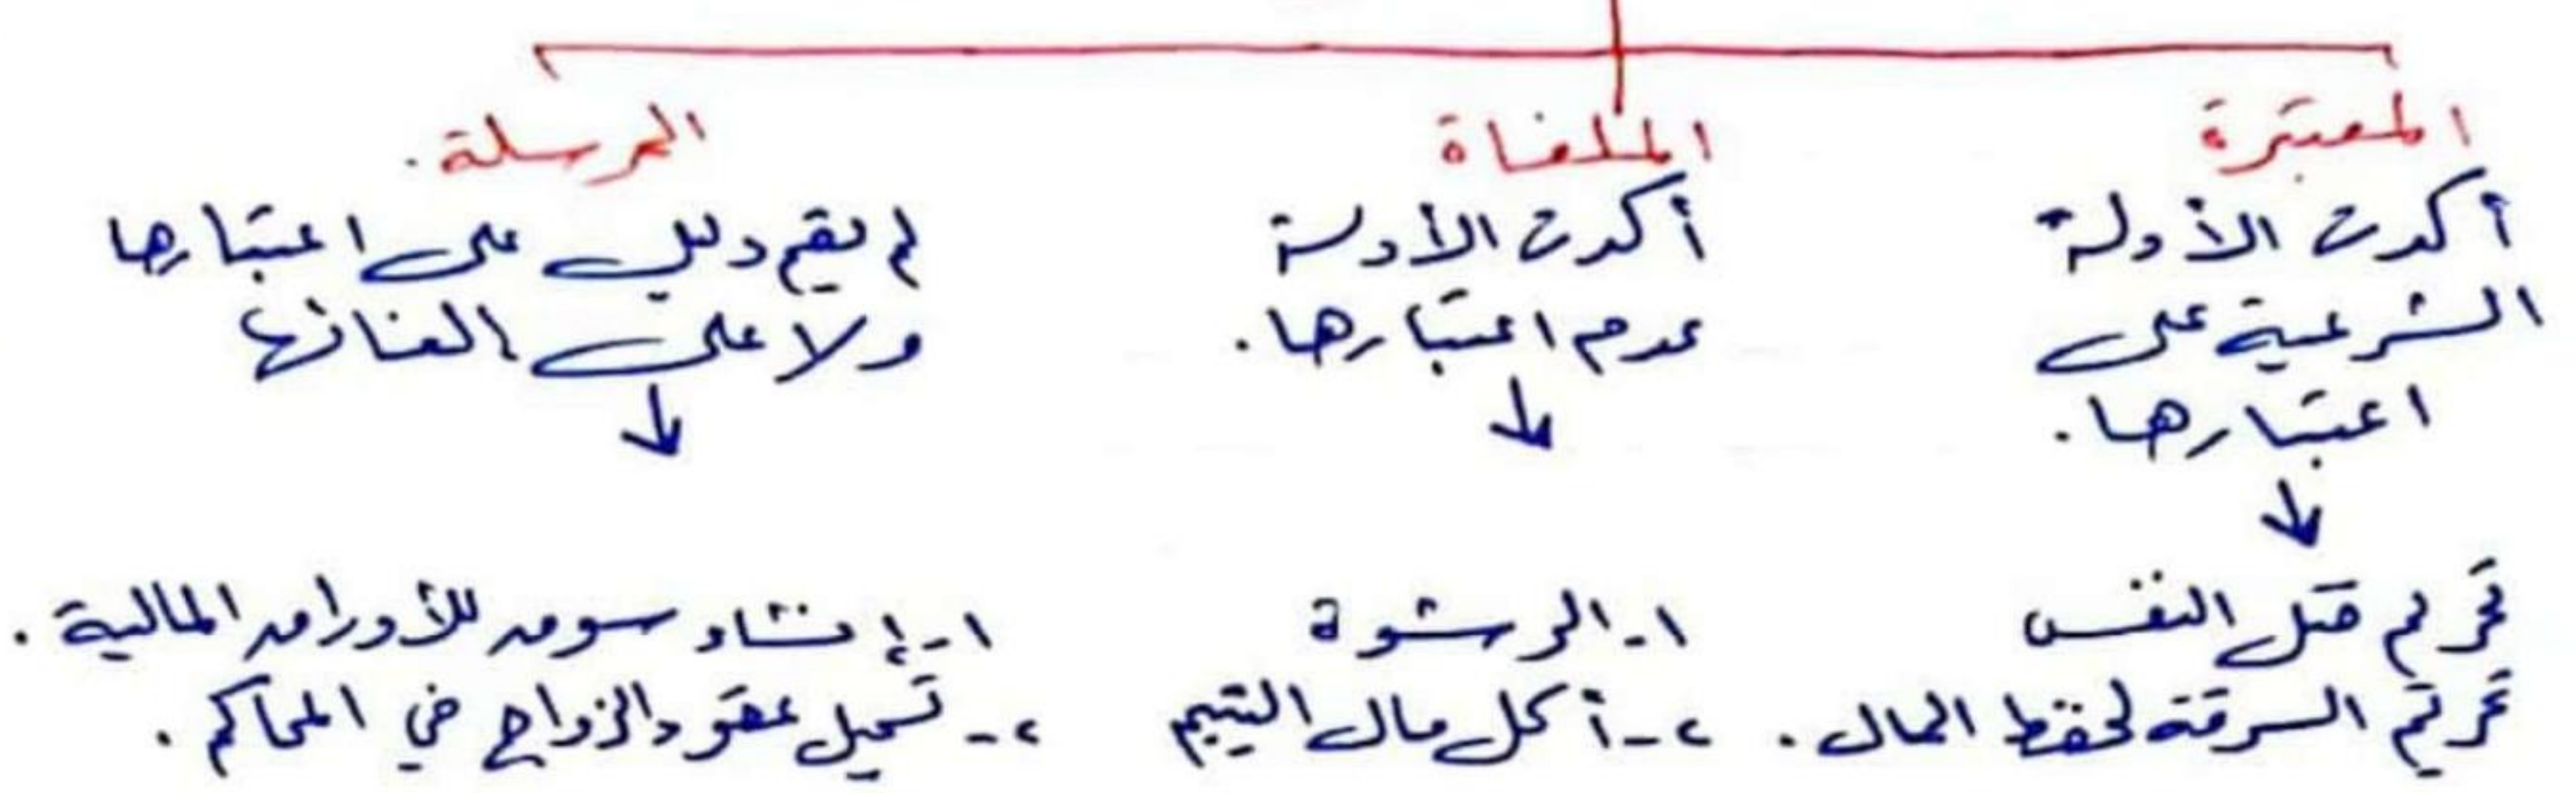 المعتبرة
أكدت الأدلة
الشرعية على
اعتبارها.
تحريم قتل النفس
تحريم السرقة لحفظ المال.
الملغاة
أكدت الأدلة
عدم اعتبارها.
١- الرشوة
٢- أكل مال اليتيم
المرسلة.
لم يقم دليل على اعتبارها
ولا على الغائها
١- إنشاء سوق للأوراق المالية.
٢- تسجيل عقود الزواج في المحاكم.